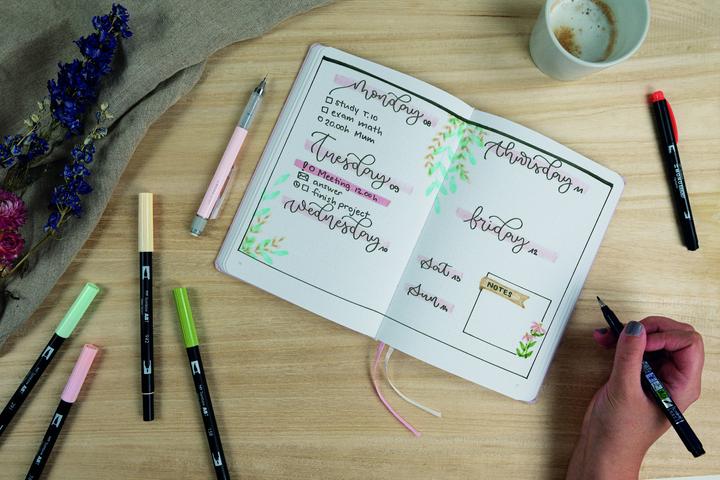 Monday 08
study T.10
exam math
20.00h Mum
Tuesday 09
! Meeting 12.00h
answer
finish project
Wednesday 10
Thursday 11
friday 12
Sat 13
Sun 14
NOTES
942